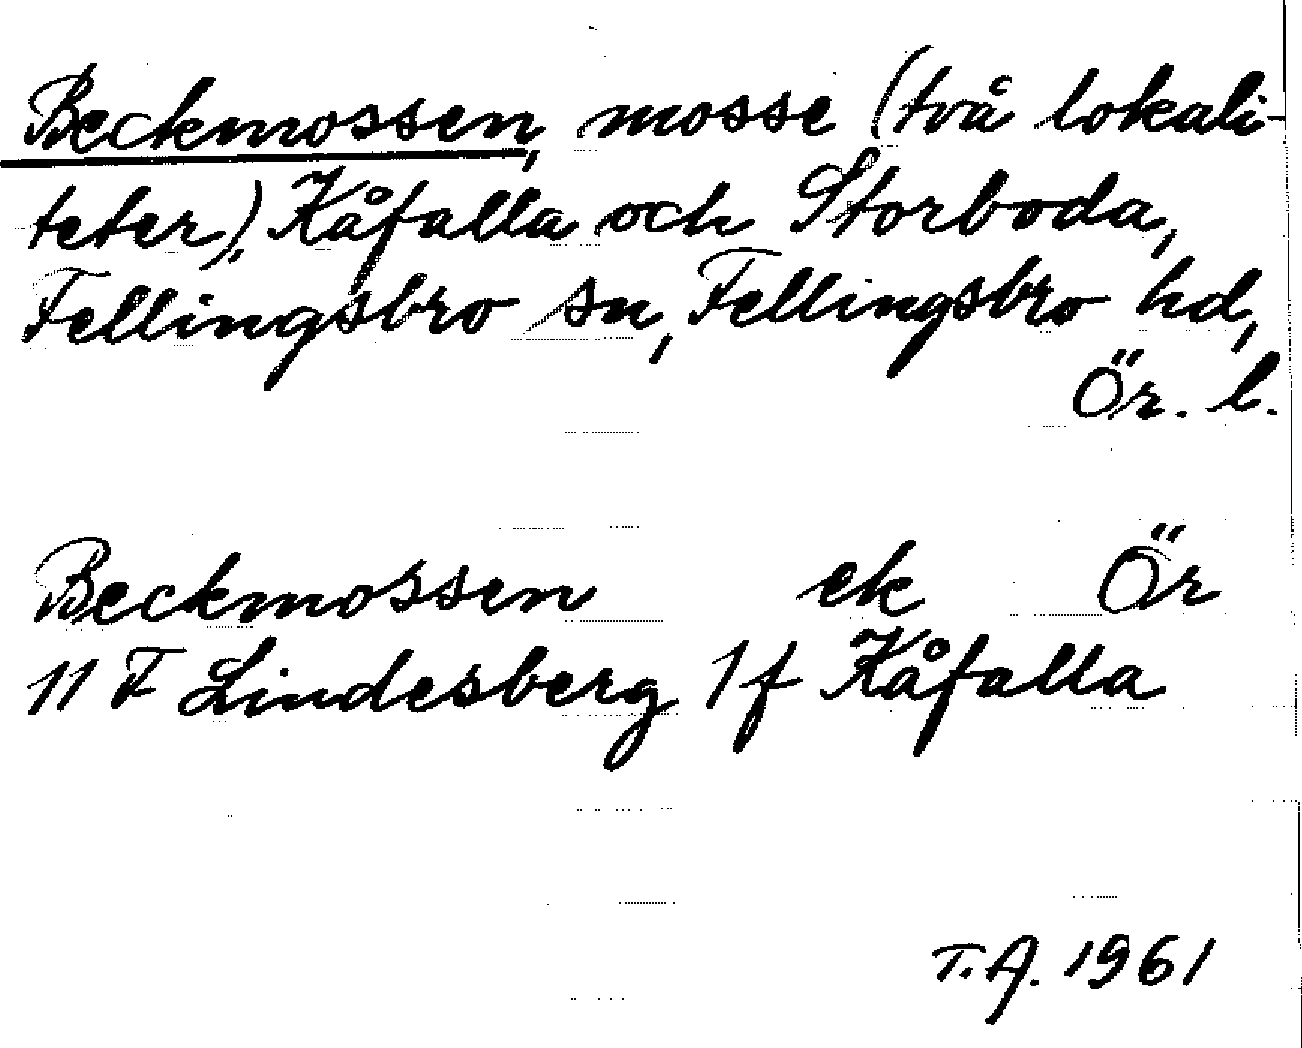 Beckmossen, mosse (två lokali-
teter), Kåfalla och Storboda,
Fellingsbro sn, Fellingsbro hd,
Ör. l.
Beckmossen ek Ör
11 F Lindesberg 1 f Kåfalla
T.A. 1961